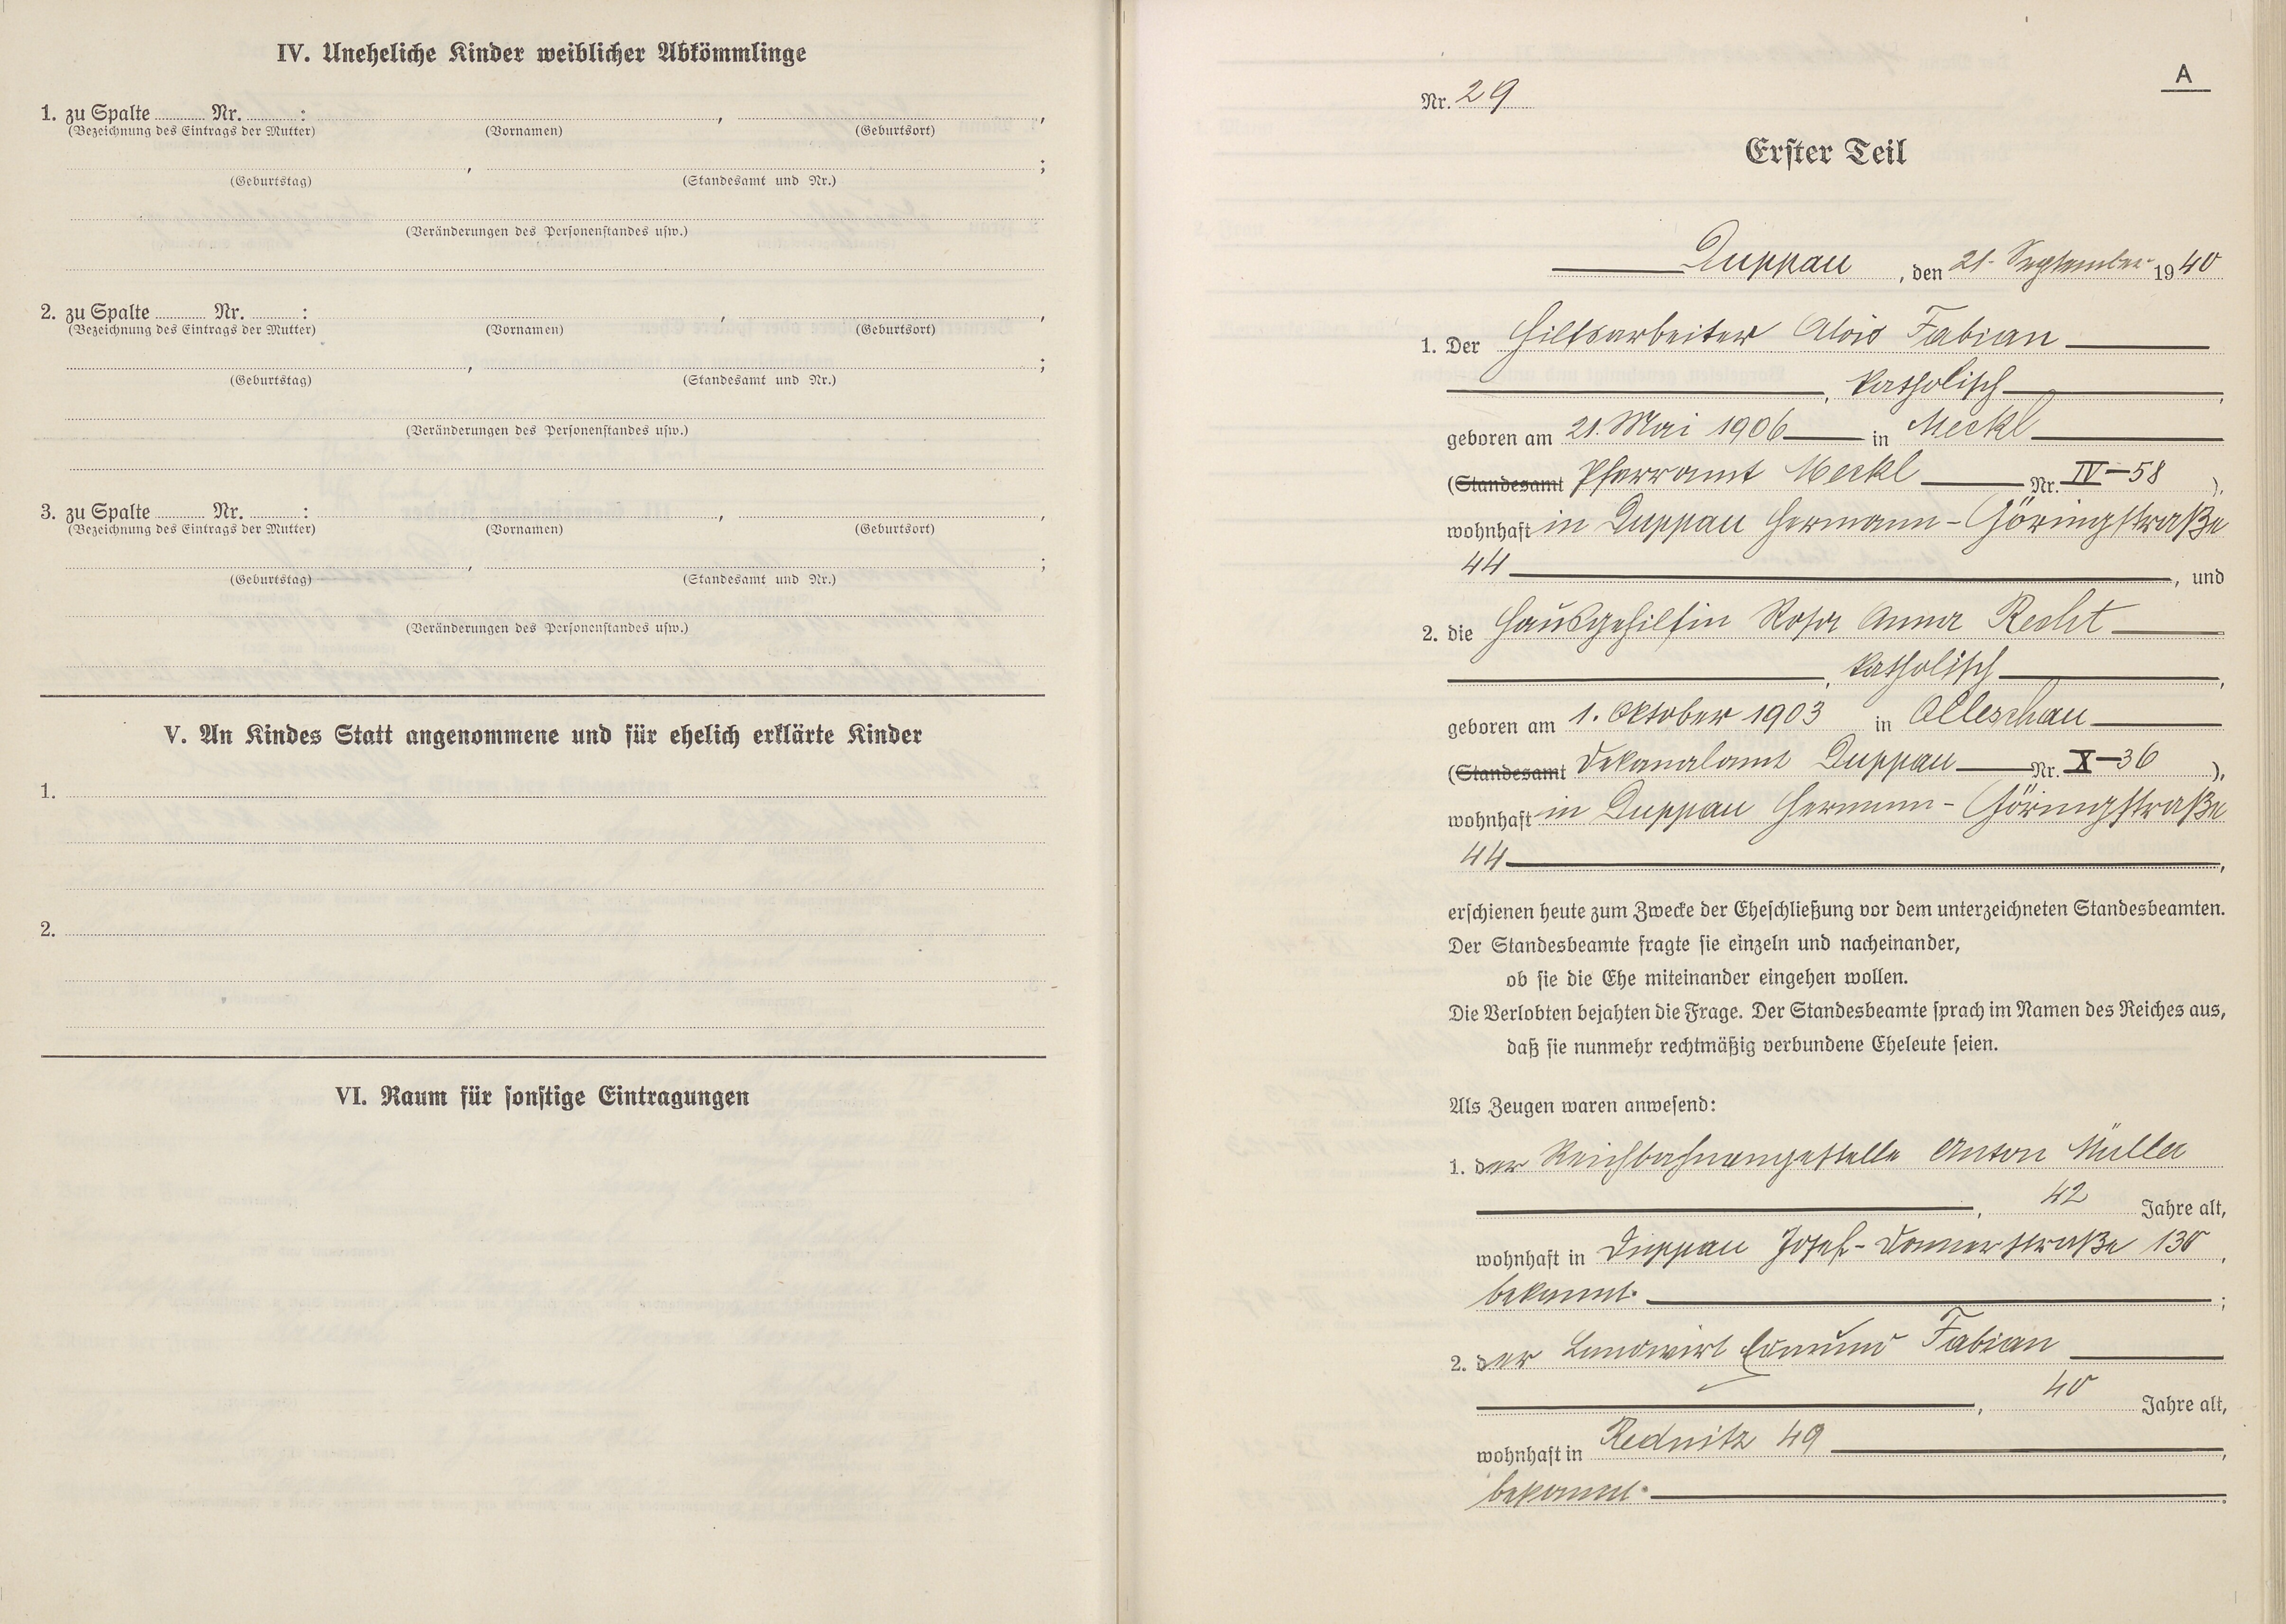 IV. Uneheliche Kinder weiblicher Abkömmlinge
1. zu Spalte ........ Nr. ........ : ........, ........,
(Bezeichnung des Eintrags der Mutter) (Vornamen) (Geburtsort)
........, ........;
(Geburtstag) (Standesamt und Nr.)
(Veränderungen des Personenstandes usw.)
2. zu Spalte ........ Nr. ........ : ........, ........,
(Bezeichnung des Eintrags der Mutter) (Vornamen) (Geburtsort)
........, ........;
(Geburtstag) (Standesamt und Nr.)
(Veränderungen des Personenstandes usw.)
3. zu Spalte ........ Nr. ........ : ........, ........,
(Bezeichnung des Eintrags der Mutter) (Vornamen) (Geburtsort)
........, ........;
(Geburtstag) (Standesamt und Nr.)
(Veränderungen des Personenstandes usw.)
V. An Kindes Statt angenommene und für ehelich erklärte Kinder
1.
2.
VI. Raum für sonstige Eintragungen
A
Nr. 29
Erster Teil
Duppau, den 21. September 1940
1. Der Hilfsarbeiter Alois Fabian
, katholisch,
geboren am 21. Mai 1906 in Meckl
(Standesamt Pfarramt Meckl Nr. IV-58),
wohnhaft in Duppau Hermann-Göringstraße
44, und
2. die Hausgehilfin Rosa Anna Recht
, katholisch,
geboren am 1. Oktober 1903 in Olleschau
(Standesamt Dekanalamt Duppau Nr. X-36),
wohnhaft in Duppau Hermann-Göringstraße
44,
erschienen heute zum Zwecke der Eheschließung vor dem unterzeichneten Standesbeamten.
Der Standesbeamte fragte sie einzeln und nacheinander,
ob sie die Ehe miteinander eingehen wollen.
Die Verlobten bejahten die Frage. Der Standesbeamte sprach im Namen des Reiches aus,
daß sie nunmehr rechtmäßig verbundene Eheleute seien.
Als Zeugen waren anwesend:
1. der Reichbahnangestelle Anton Müller
, 42 Jahre alt,
wohnhaft in Duppau Josef-Donnerstraße 130,
bekannt. ;
2. der Landwirt Edmund Fabian
, 40 Jahre alt,
wohnhaft in Rednitz 49,
bekannt.